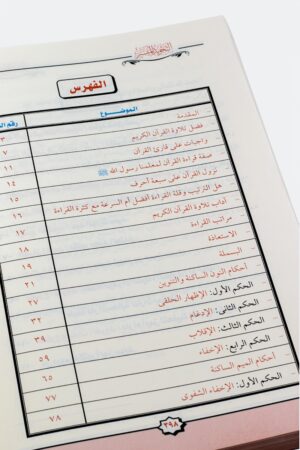 الفهرس
الموضوع رقم
- المقدمة ٣
- فضل تلاوة القرآن الكريم ٧
- واجبات على قارئ القرآن ١١
- صفة قراءة القرآن لمعلمنا رسول الله ﷺ ١٤
- نزول القرآن على سبعة أحرف ١٥
- هل الترتيل وقلة القراءة أفضل أم السرعة مع كثرة القراءة ١٦
- آداب تلاوة القرآن الكريم ١٧
- مراتب القراءة ١٨
- الاستعاذة ١٩
- البسملة ٢١
- أحكام النون الساكنة والتنوين ٢٧
- الحكم الأول: الإظهار الحلقى ٣٢
- الحكم الثانى: الإدغام ٣٩
- الحكم الثالث: الإقلاب ٥٩
- الحكم الرابع: الإخفاء ٦٥
- أحكام الميم الساكنة ٧٧
- الحكم الأول: الإخفاء الشفوى ٧٨
٣٩٨